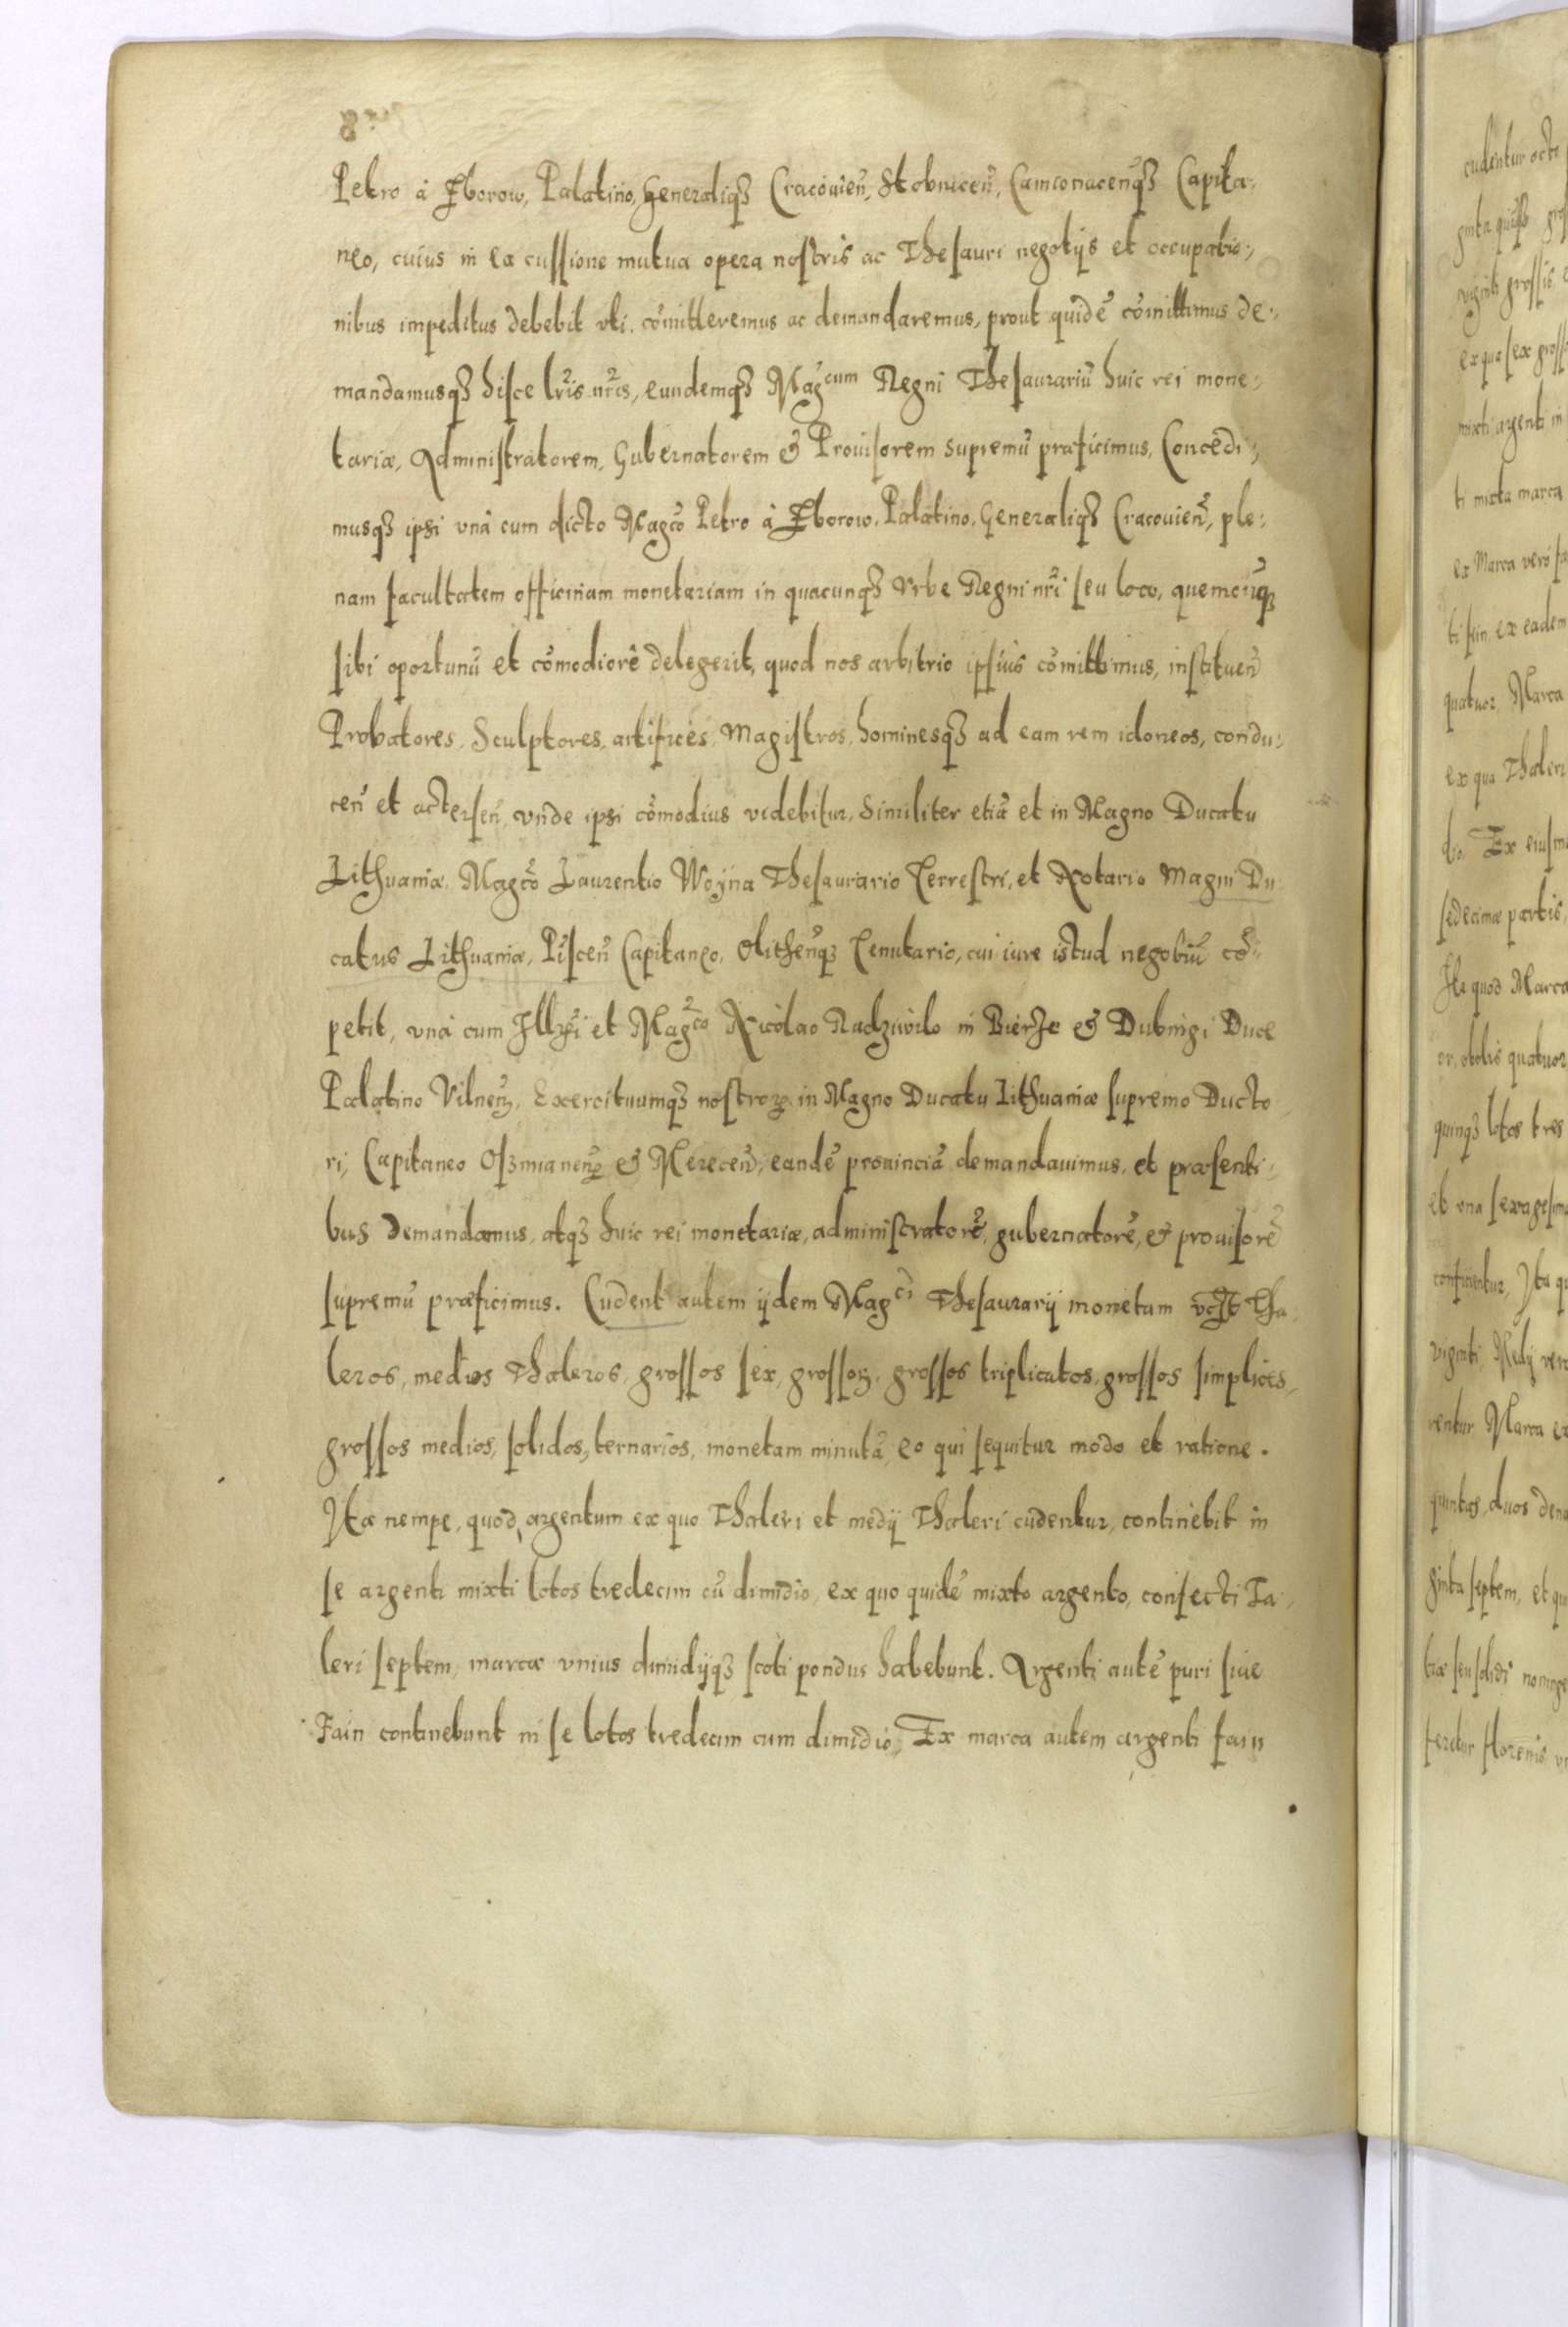 Petro à Zborow, Palatino, Generaliq̃ꝫ Cracouień, Stobniceń, Camionaceńq̃ꝫ Capita-
neo, cuius in ea cussione mutua opera nostris ac Thesauri negotijs et occupatio-
nibus impeditus debebit vti, cõmitteremus ac demandaremus, prout quidẽ cõmittimus de-
mandamusqꝫ hisce lr̃is nr̃is, eundemqꝫ Mag̃cum Regni Thesaurariũ huic rei mone-
tariæ, Administratorem, Gubernatorem & Prouisorem supremũ præficimus, Concedi-
musqꝫ ipsi vnà cum dicto Magc̃o Petro à Zborow, Palatino, Generaliqꝫ Cracouień, ple-
nam facultatem officinam monetariam in quacunqꝫ Vrbe Regni nr̃i seu loco, quemcũqꝫ
sibi oportunũ et cõmodiorẽ delegerit, quod nos arbitrio ipsius cõmittimus, institueń
Probatores, Sculptores, artifices, Magistros, hominesqꝫ ad eam rem idoneos, condu-
ceń et acterseń, vnde ipsi cõmodius videbitur, Similiter etiã et in Magno Ducatu
Lithuaniæ, Magc̃o Laurentio Woyna Thesaurario Terrestri, et Notario Magni Du
catus Lithuaniæ, Pisceń Capitaneo, Olitheńqꝫ Tenutario, cui iure istud negotiũ cõ-
petit, vnà cum Illr̃i et Mag̃co Nicolao Radziwilo in Bierże & Dubingi Duce
Palatino Vilneń, Exercituumqꝫ nostroꝝ in Magno Ducatu Lithuaniæ supremo Ducto
ri, Capitaneo Oszmianeń & Mereceń, eandẽ prouinciã demandauimus, et præsenti-
bus demandamus, atqꝫ huic rei monetariæ, administratorẽ, gubernatorẽ, & prouisorẽ
supremũ præficimus. Cudent autem ijdem Magci Thesaurarij monetam vcꝫt Tha
leros, medios Thaleros, grossos sex, grossoꝝ, grossos triplicatos, grossos simplices,
grossos medios, solidos, ternarios, monetam minutã, eo qui sequitur modo et ratione.
Ita nempe, quod argentum ex quo Thaleri et medij Thaleri cudentur, continebit in
se argenti mixti lotos tredecim cũ dimidio, ex quo quidẽ mixto argento, confecti Ta
leri septem, marcæ vnius dimidijqꝫ scoti pondus habebunt. Argenti autẽ puri siue
Fain continebunt in se lotos tredecim cum dimidio, Ex marca autem argenti fain
cudentur octo
viginti grossis
ex qua sex gross
mixti argenti in
ti mixta marca
ex Marca verò
ti fein ex eadem
quatuor, Marca
ex qua Thaleri
dio. Ex eiusm
sedecimæ partis
Ita quod Marca
or, obolis quatuor
quinqꝫ lotos tres
et vna sexagesima
continentur, Ita qu
viginti, Medij vero
rentur Marca ex
quintas, duos dena
ginta septem, et qu
triæ seu solidi nominge
feretur florenis